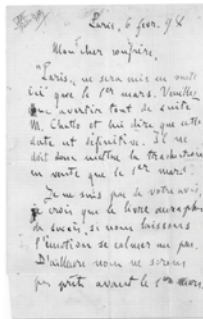 Paris, 6 févr. 98
Mon cher confrère,
"Paris" ne sera mis en vente
ici que le 1er mars. Veuillez
en avertir tout de suite
M. Chatto et lui dire que cette
date est définitive. Il ne
doit donc mettre la traduction
en vente que le 1er mars.
Je ne suis pas de votre avis,
je crois que le livre aura plus
de succès, si nous laissons
l'émotion se calmer un peu.
D'ailleurs nous ne serons
pas prêts avant le 1er mars.